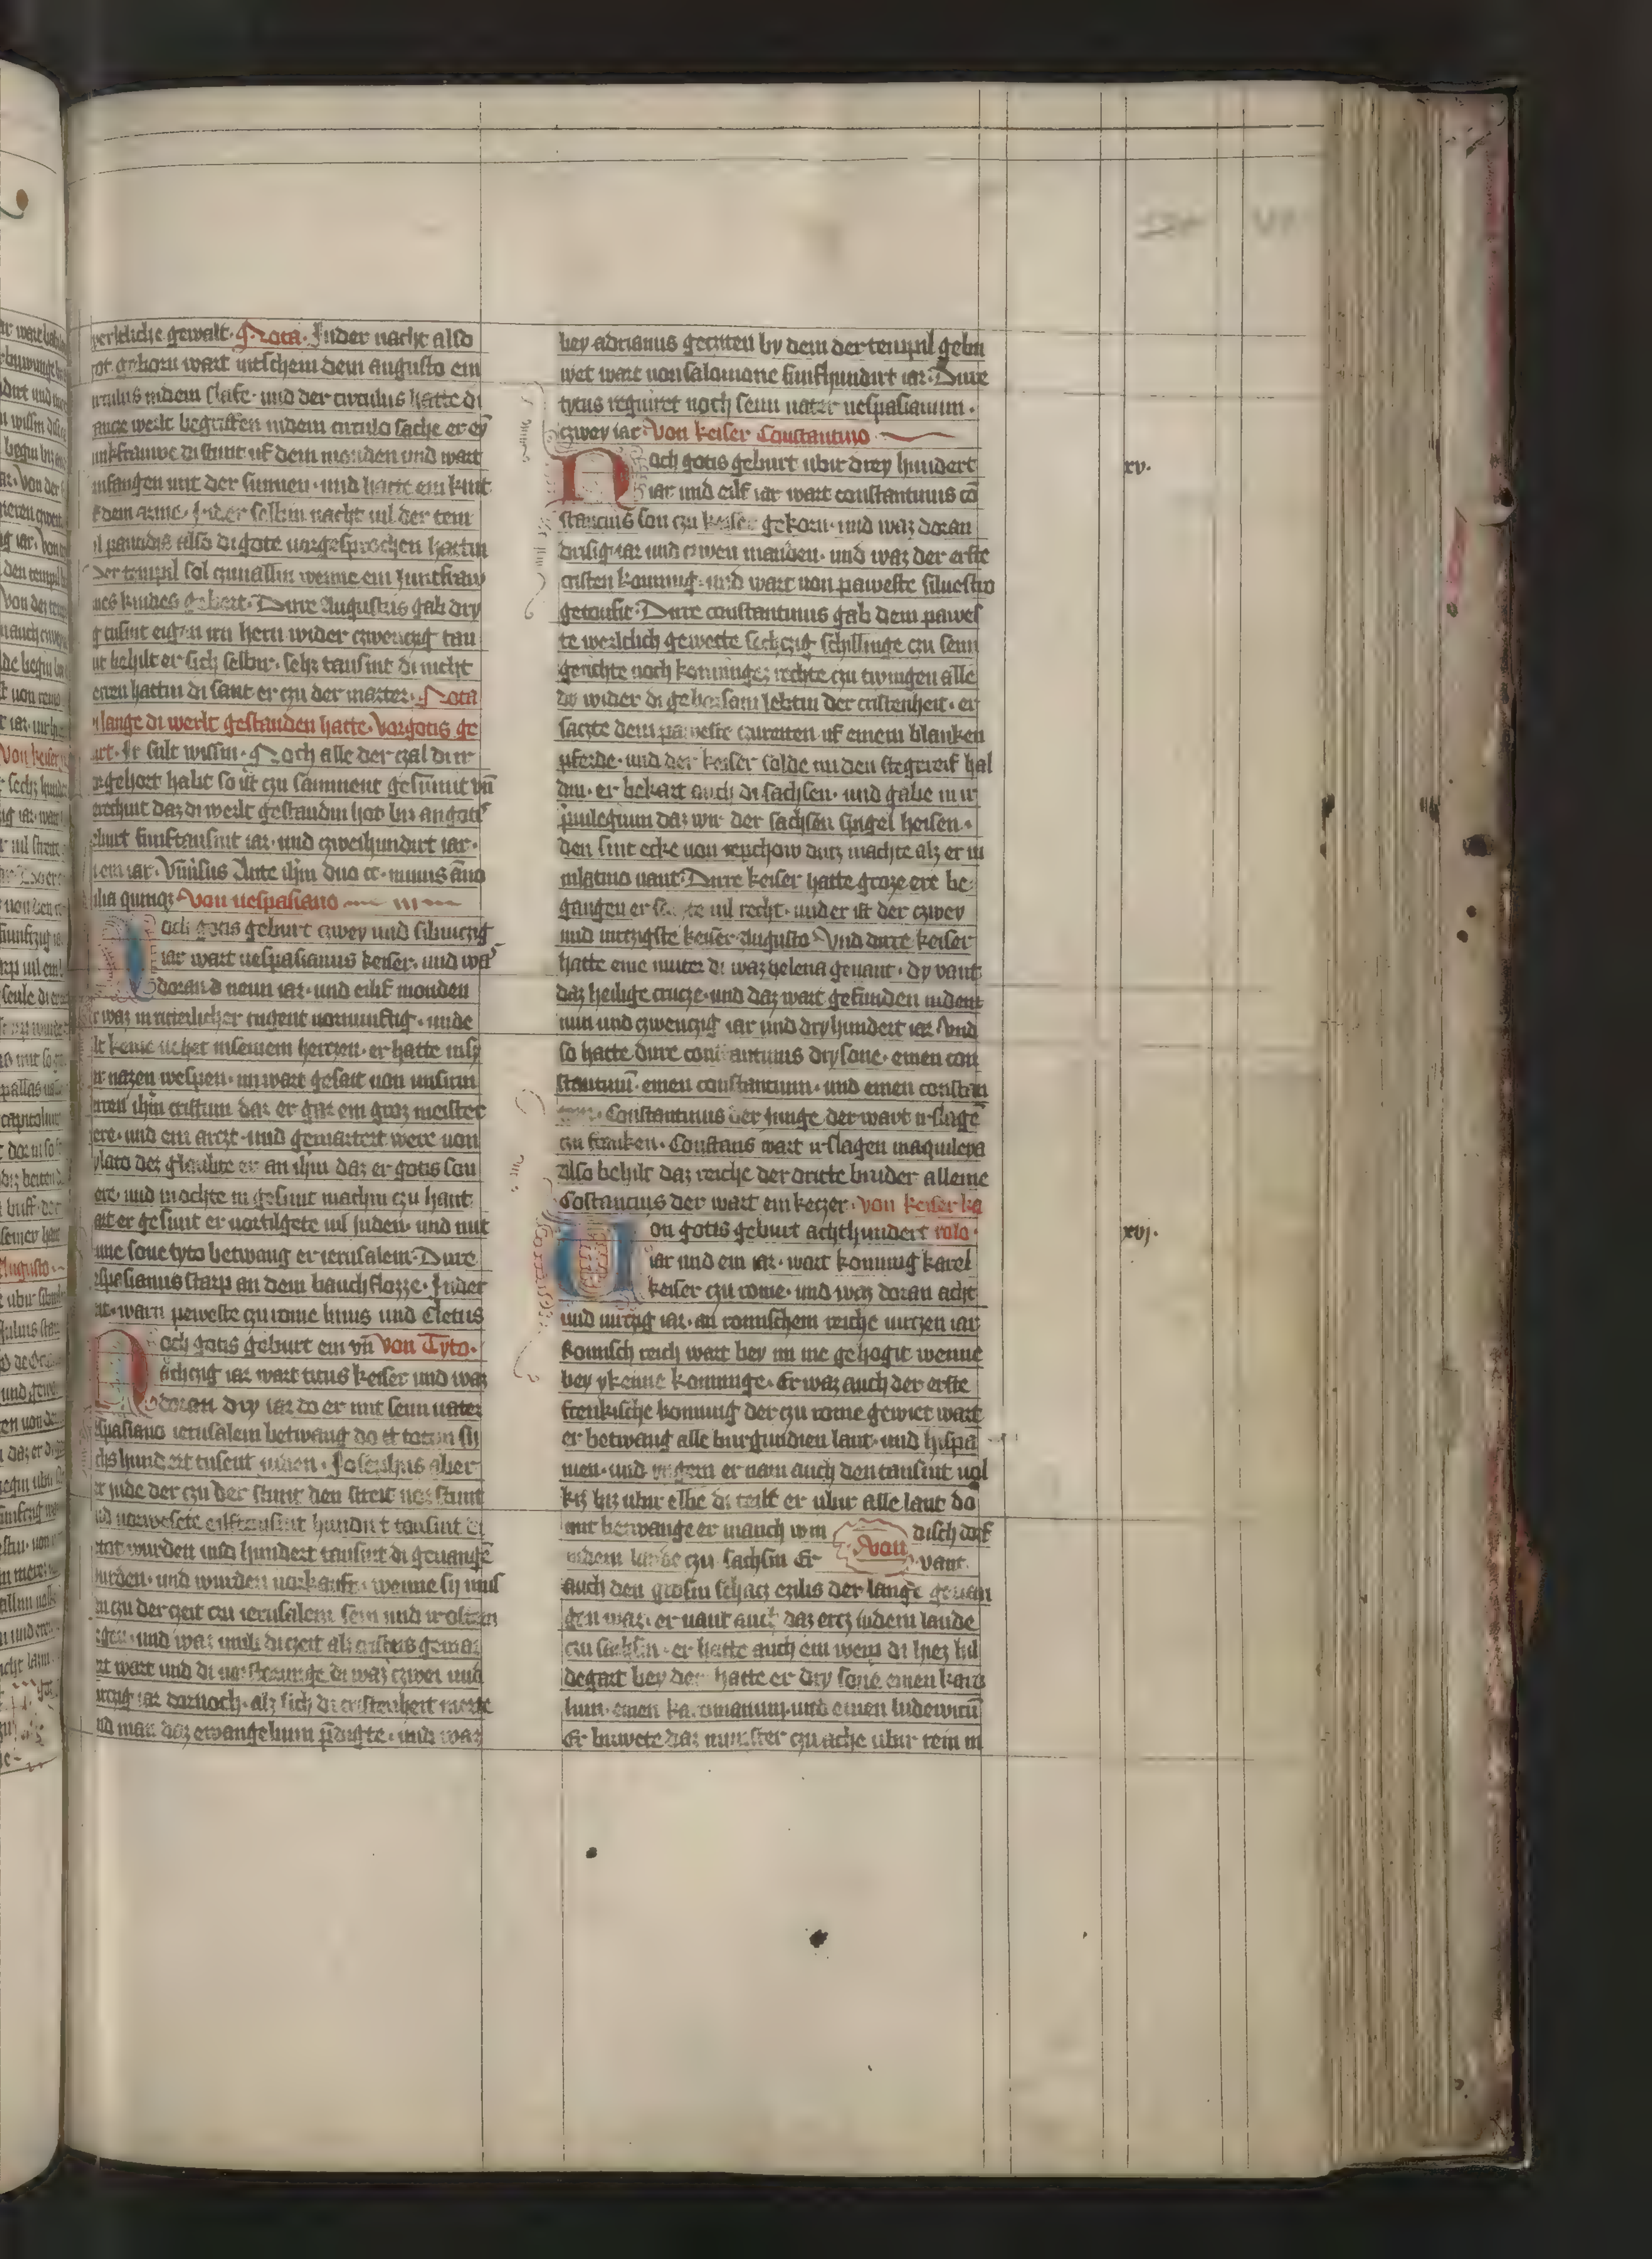 werltliche gewalt. Nota. Inder nacht also
got geborn wart irschein dem augusto ein
circulus indem slafe. und der circulus hatte di
gancze werlt begriffen indem circulo sache er ey
iunkfrauwe di stunt uf dem monden und wart
umfangen mit der sunnen. und hatte ein kint
uf dem arme. Inder selbin nacht uil der tem
pil paudis also di gote vorgesprochen hattin
Der tempil sol czuuallin wenne ein Juncfraw
eines kindes gebert. Dirre Augustus gab dry
tusint eigen irn hern wider czwenczig tau
sint behilt er sich selbir. sehz tausint di nicht
erren hattin di sant er czu der marter. Nota
wi lange di werlt gestanden hatte. Vorgotis ge
burt. Ir sult wissin. Noch alle der czal di ir
vorgehort habt so ist czu samment gesummit vn̄
gerechint daz di werlt gestandin hot biz an gotis
geburt funftausint iar. und czweihundirt iar.
ien iar. Vnīsus Ante ihm duo cc. minus āno
milia quinqz Von uespasiano
Noch gotis geburt czwey und sibinczig
iar wart uespasianus keiser. und waz
doran d neun iar. und eilif monden
er waz in ritterlicher tugent vornunftig. unde
hilt keine uehet inseinem herczen. er hatte insy
ner nazen wespen. im wart gesait uon unsirm
herren ihm cristum daz er gar ein groz meister
were. und ein arczt. und gemartert were uon
pylato dez gloubte er an ihm daz er gotis son
were. und mochte in gesunt machin czu hant
wart er gesunt er uortilgete uil juden. und mit
sime sone tyto betwang er ierusalem. Dirre
uespasianus starp an dem bauchflozze. Inder
czit. warn peweste czu rome linus und Cletus
Noch gotis geburt ein vn̄ Von Tyto.
achczig iar wart titus keiser und waz
doran dry iar do er mit seim uater
uespasiano ierusalem betwang do irtotin sy
sechs hundirt tusent iuden. Josephus aber
der iude der czu der stunt den streit uorstunt
und uorwesete eilftausint hundirt tausint di
irtot wurden und hundert tausint di geuangē
wurden. und wurden uorkauft. wenne sy mus
tin czu der czeit czu ierusalem sein und woltin
und waz umb di czeit als cristus gemar
tirt wart und di uorsturunge di waz czwei und
uirczig iar dornoch. alz sich di cristenheit merte
und man daz ewangelium p̄digte. und waz
bey adrianus geczeiten by dem der tempil gebu
wet wart uon salomone funfhundirt iar. Dirre
tytus regniret noch seim uater uespasianum.
czwey iar. Von keiser Constantino
Noch gotis geburt ubir drey hundert
iar und eilf iar wart constantinus cō
stancius son czu keiser gekorn. und waz doran
drisig iar und czwen manden. und waz der erste
cristen konning. und wart uon paweste siluestro
getoufit. Dirre constantinus gab dem pawes
te werltlich gewette sechczig schillinge czu seim
gerichte noch konninges rechte czu twingen alle
do wider di gehorsam lebtin der cristenheit. er
saczte dem paweste czureiten uf einem blanken
pferde. und der keiser solde im den stegereif hal
din. er bekart auch di sachsen. und gabe in ir
priuilegium daz wir der sachsen spigel heisen.
den sint ecke uon repchow dutz machte alz er in
inlatino uant. Dirre keiser hatte groze ere be
gangen er sa..te uil recht. und er ist der czwey
und uirczigste keiser Augusto Vnd dirre keiser
hatte eine muter di waz helena genant. dy vant
daz heilige crucze. und daz wart gefunden indem
nun und czwenczig iar und dryhundert iar. Vnd
so hatte dirre constantinus dry sone. einen con
stantinū. einen constantium. und einen constan
tem. Constantinus der junge der wart irslagē
czu franken. Constans wart irslagen in aquileya
also behilt daz reiche der dritte bruder alleine
Costancius der wart ein keczer. von keiser ka
Uon gotis geburt achthundert rolo.
iar und ein iar. wart konning karel
keiser czu rome. und waz doran acht
und uirczig iar. an romischem reiche uirczen iar
Romisch reich wart bey im me gehogit wenne
bey ykeinne konninge. Er waz auch der erste
frenkische konning der czu rome gewiet wart
er betwang alle burgundien lant. und hispa
nien. und ungern er nam auch den tausint uol
kiz biz ubir elbe di teilt er ubir alle lant do
mit betwange er manch win disch dorf
indem lande czu sachsin Er Von vant
auch den grosin schacz ezilis der lange geuan
gen waz. er uant auch daz ercz indem lande
czu sachsin. er hatte auch ein weip di hiez hil
degart bey der hatte er dry sone einen karo
lum. einen karomanum. und einen ludewicū
Er buwete daz munster czu ache ubir rein in
xv.
xvj.